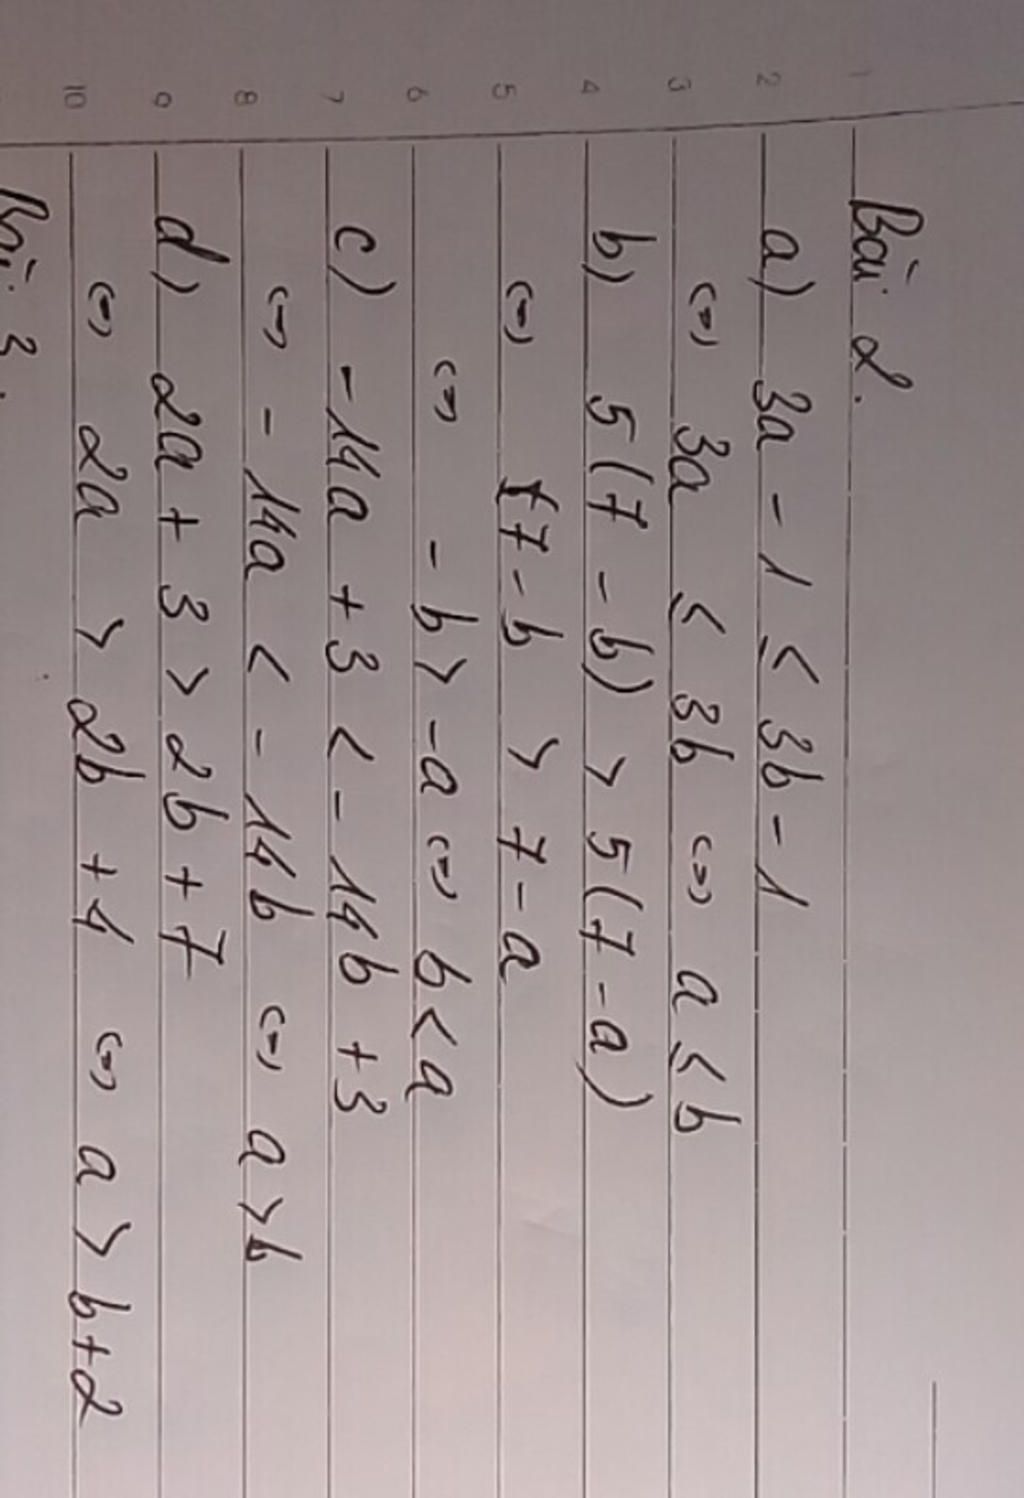 Bài 2.
a) 3a - 1 ≤ 3b - 1
<=> 3a ≤ 3b <=> a ≤ b
b) 5(7 - b) > 5(7 - a)
<=> 7 - b > 7 - a
<=> - b > -a <=> b < a
c) -14a + 3 < -14b + 3
<=> - 14a < - 14b <=> a > b
d) 2a + 3 > 2b + 7
<=> 2a > 2b + 4 <=> a > b + 2
Bài 3.
1
2
3
4
5
6
7
8
9
10